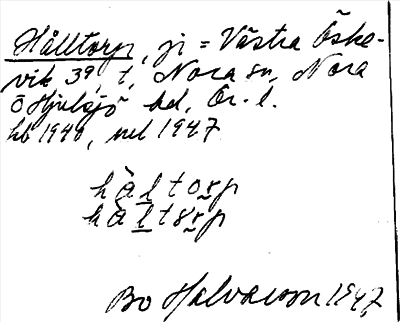 Hålltorp, ji = Västra Öske-
vik 39, t, Nora sn, Nora
o Hjulsjö hd, Ör. l.
kb 1940, mel 1947
hàltorp
hàltsrp
Bo Halvarson 1947,